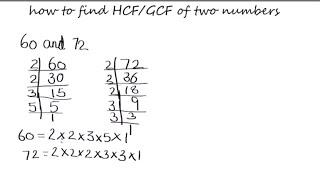 how to find HCF/GCF of two numbers
60 and 72
2 60
2 30
3 15
5 5
1
2 72
2 36
2 18
3 9
3 3
1
60 = 2×2×3×5×1
72 = 2×2×2×3×3×1